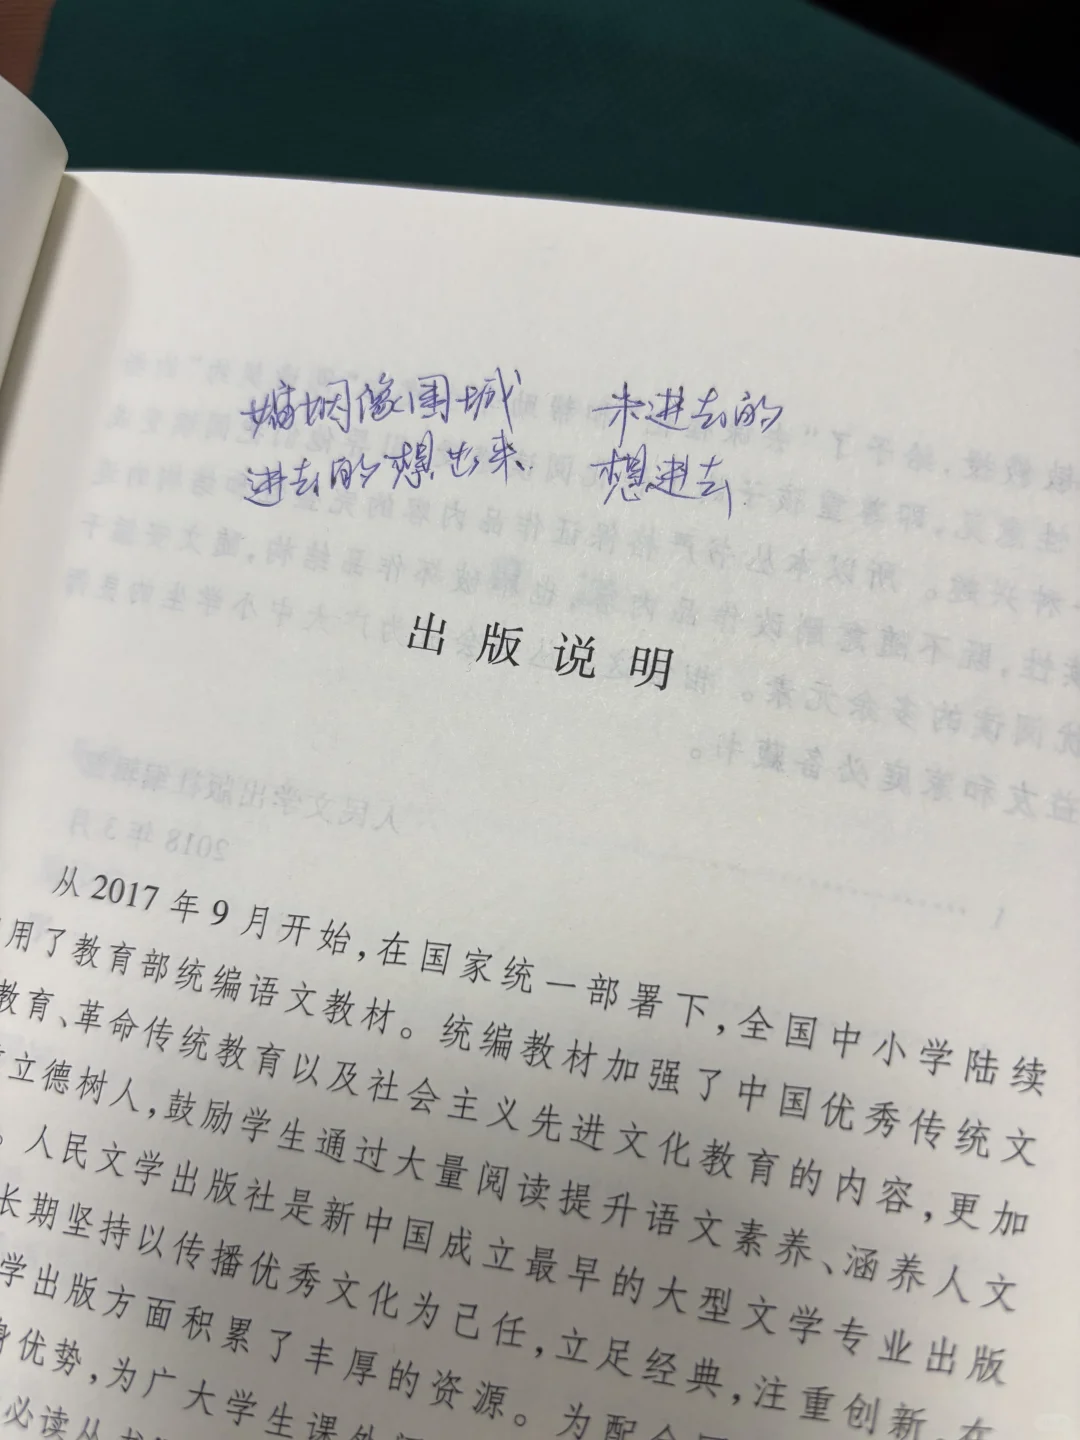 婚姻像围城 未进去的
进去的想出来. 想进去.
出版说明
从 2017 年 9 月开始，在国家统一部署下，全国中小学陆续
用了教育部统编语文教材。统编教材加强了中国优秀传统文
教育、革命传统教育以及社会主义先进文化教育的内容，更加
立德树人，鼓励学生通过大量阅读提升语文素养、涵养人文
。人民文学出版社是新中国成立最早的大型文学专业出版
长期坚持以传播优秀文化为己任，立足经典，注重创新，在
学出版方面积累了丰厚的资源。为配合
优势，为广大学生课外
必读丛书